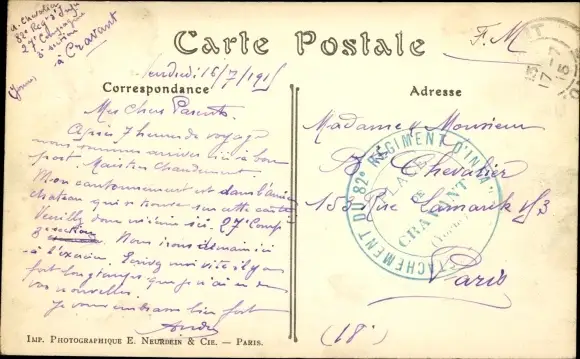 A. Chevalier
82e Reg d'Inf
27e Compagnie
3e section
à Cravant
(Yonne)
F. M
Carte Postale
Vendredi 16/7/1915
Correspondance
Adresse
Mes Chers Parents
Après 7 heures de voyage
nous sommes arrivés ici à bon
port. Mais bien chaudement.
Mon cantonnement est dans l'ancien
chateau qui se trouve sur cette carte
27e Comp
section. Nous irons demain
à l'exercice. Ecrivez moi vite il y a
fort longtemps que je n'ai eu de
vos nouvelles.
Je vous embrasse bien fort
André
Madame Monsieur
Chevalier
153 Rue Lamarck 153
Paris
(18e)
DÉTACHEMENT DU 82e RÉGIMENT D'INFie
PLACE
DE
CRAVANT
(Yonne)
17-7
15
IMP. PHOTOGRAPHIQUE E. NEURDEIN & CIE. — PARIS.